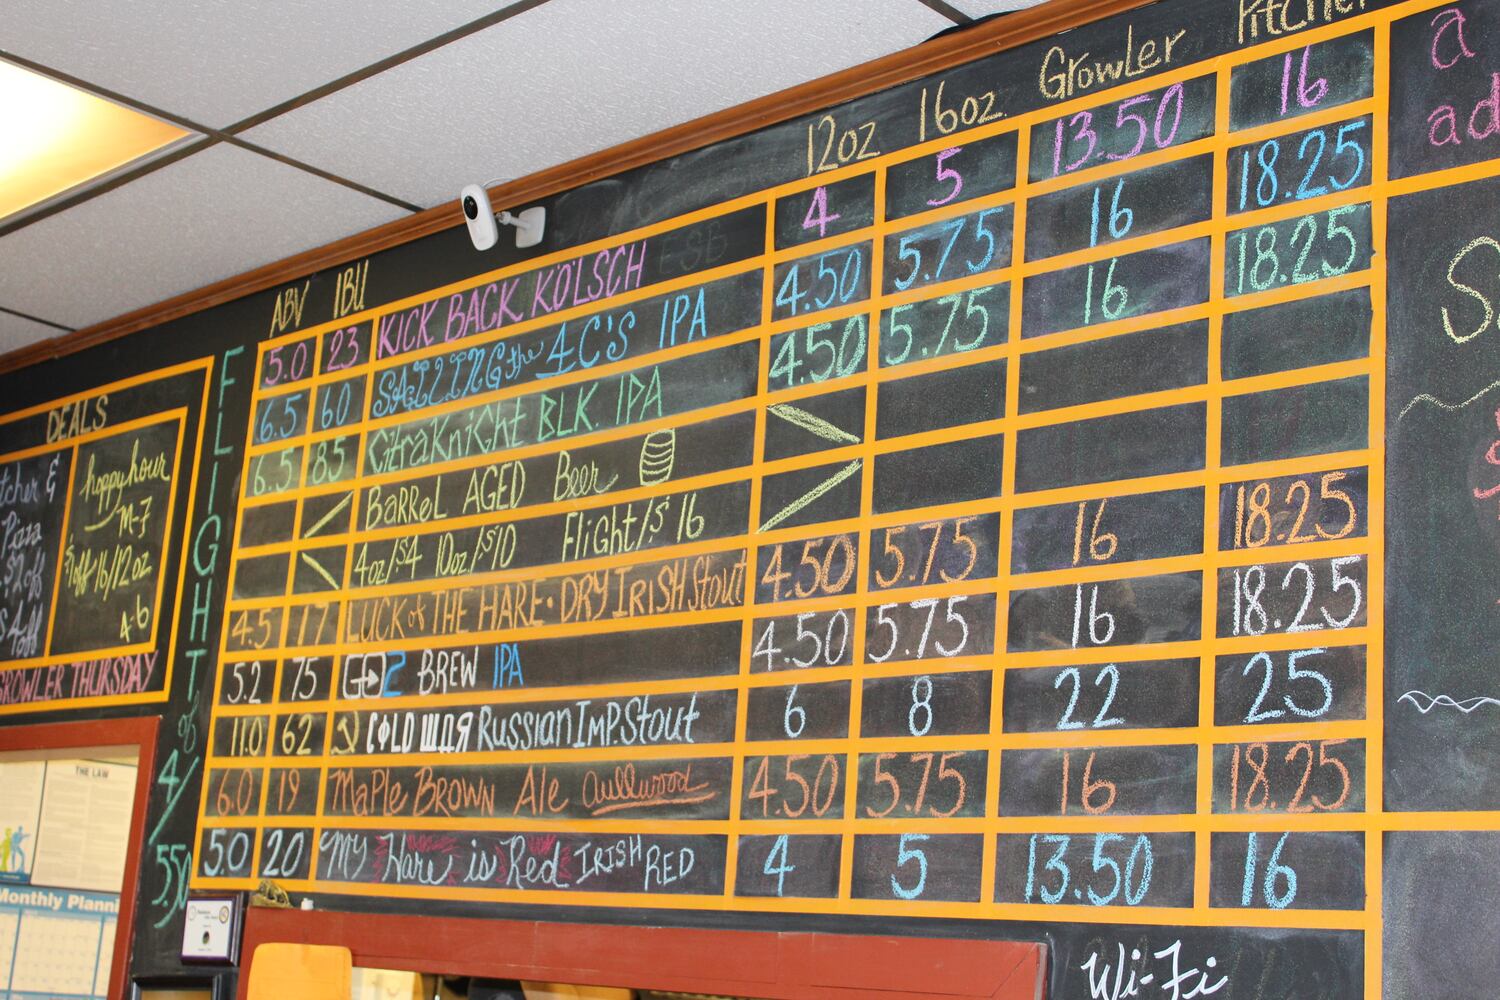 12oz 16oz Growler Pitcher
ABV IBU
5.0 23 KICK BACK KÖLSCH ESB 4 5 13.50 16
6.5 60 SAILING the 4C'S IPA 4.50 5.75 16 18.25
6.5 85 CitraKniGht BLK. IPA 4.50 5.75 16 18.25
BaRReL AGED Beer
4oz/$4 10oz/$10 Flight/$16
4.5 17 LUCK of THE HARE • DRY IRISH Stout 4.50 5.75 16 18.25
5.2 75 2 BREW IPA 4.50 5.75 16 18.25
11.0 62 COLD ШДЯ Russian Imp. Stout 6 8 22 25
6.0 19 Maple Brown Ale Cullwood 4.50 5.75 16 18.25
5.0 20 My Hare is Red IRISH RED 4 5 13.50 16
FLIGHT
4/
5.50
DEALS
tcher &
Pizza
$2 off
$4 off
hoppy hour
M-F
$1 off 16/12 oz
4-6
GROWLER THURSDAY
a
ad
S
Wi-Fi
THE LAW
Monthly Planni